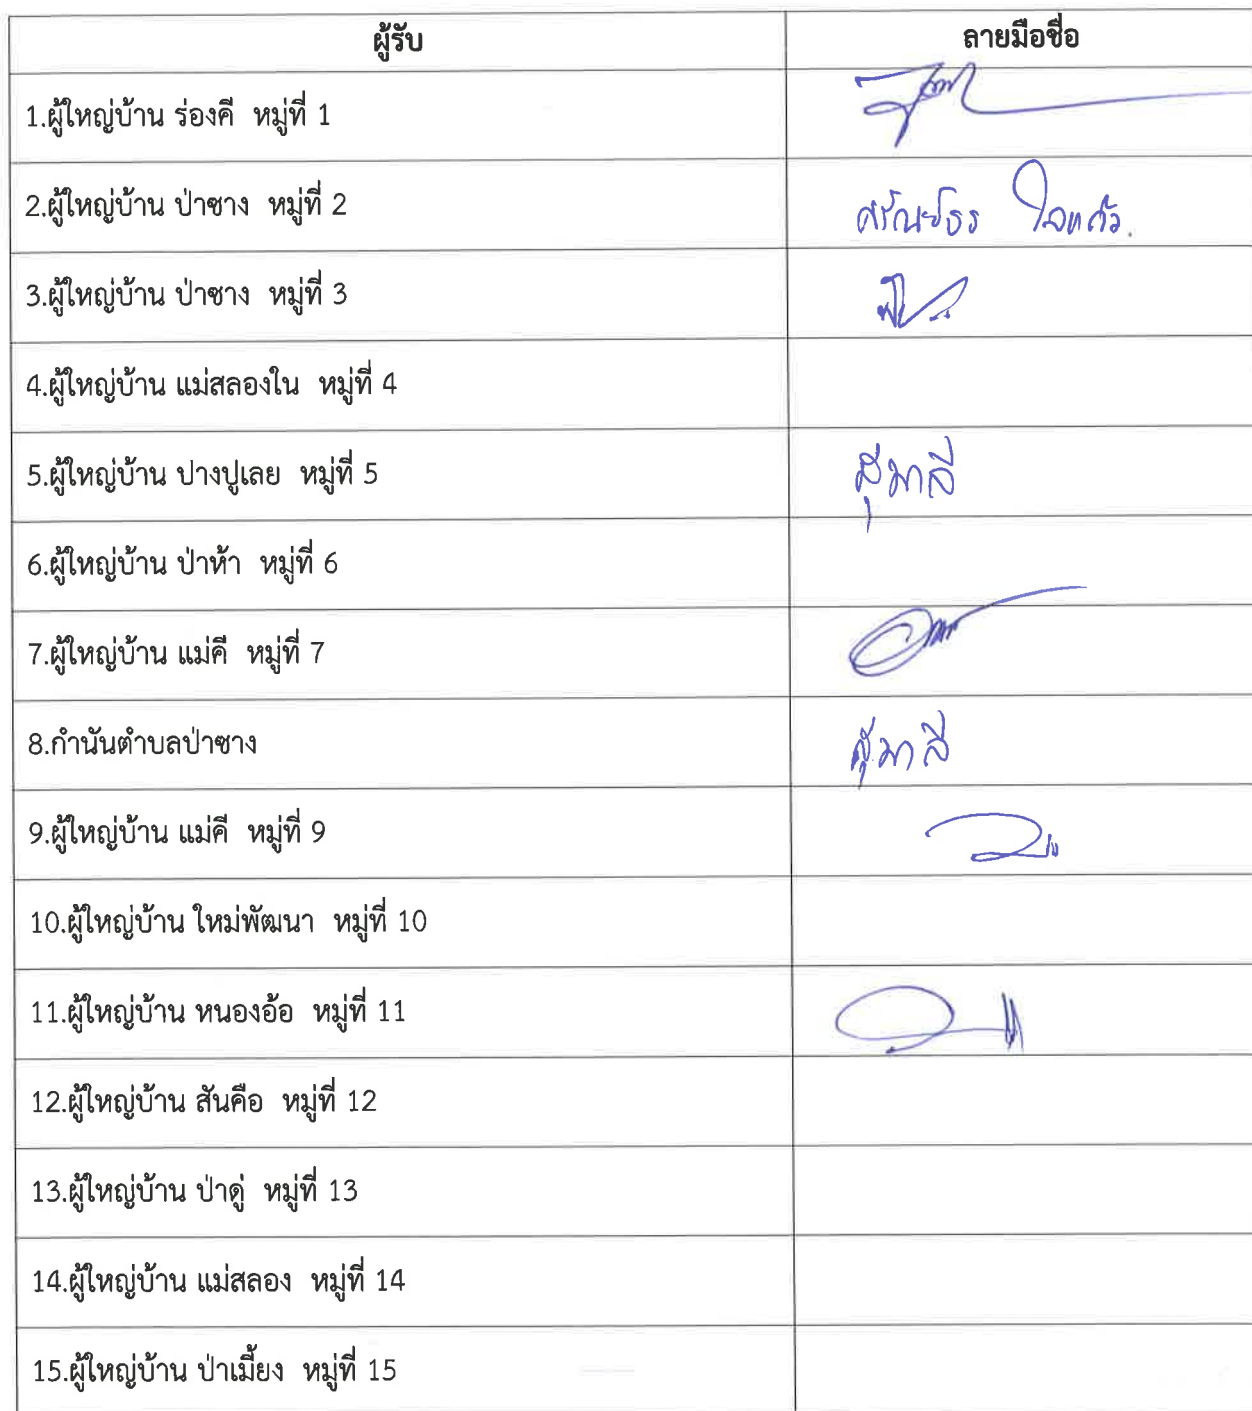 ผู้รับ ลายมือชื่อ
1.ผู้ใหญ่บ้าน ร่องคี หมู่ที่ 1
2.ผู้ใหญ่บ้าน ป่าซาง หมู่ที่ 2
3.ผู้ใหญ่บ้าน ป่าซาง หมู่ที่ 3
4.ผู้ใหญ่บ้าน แม่สลองใน หมู่ที่ 4
5.ผู้ใหญ่บ้าน ปางปูเลย หมู่ที่ 5 สุมาลี
6.ผู้ใหญ่บ้าน ป่าห้า หมู่ที่ 6
7.ผู้ใหญ่บ้าน แม่คี หมู่ที่ 7
8.กำนันตำบลป่าซาง สุมาลี
9.ผู้ใหญ่บ้าน แม่คี หมู่ที่ 9
10.ผู้ใหญ่บ้าน ใหม่พัฒนา หมู่ที่ 10
11.ผู้ใหญ่บ้าน หนองอ้อ หมู่ที่ 11
12.ผู้ใหญ่บ้าน สันคือ หมู่ที่ 12
13.ผู้ใหญ่บ้าน ป่าดู่ หมู่ที่ 13
14.ผู้ใหญ่บ้าน แม่สลอง หมู่ที่ 14
15.ผู้ใหญ่บ้าน ป่าเมี้ยง หมู่ที่ 15